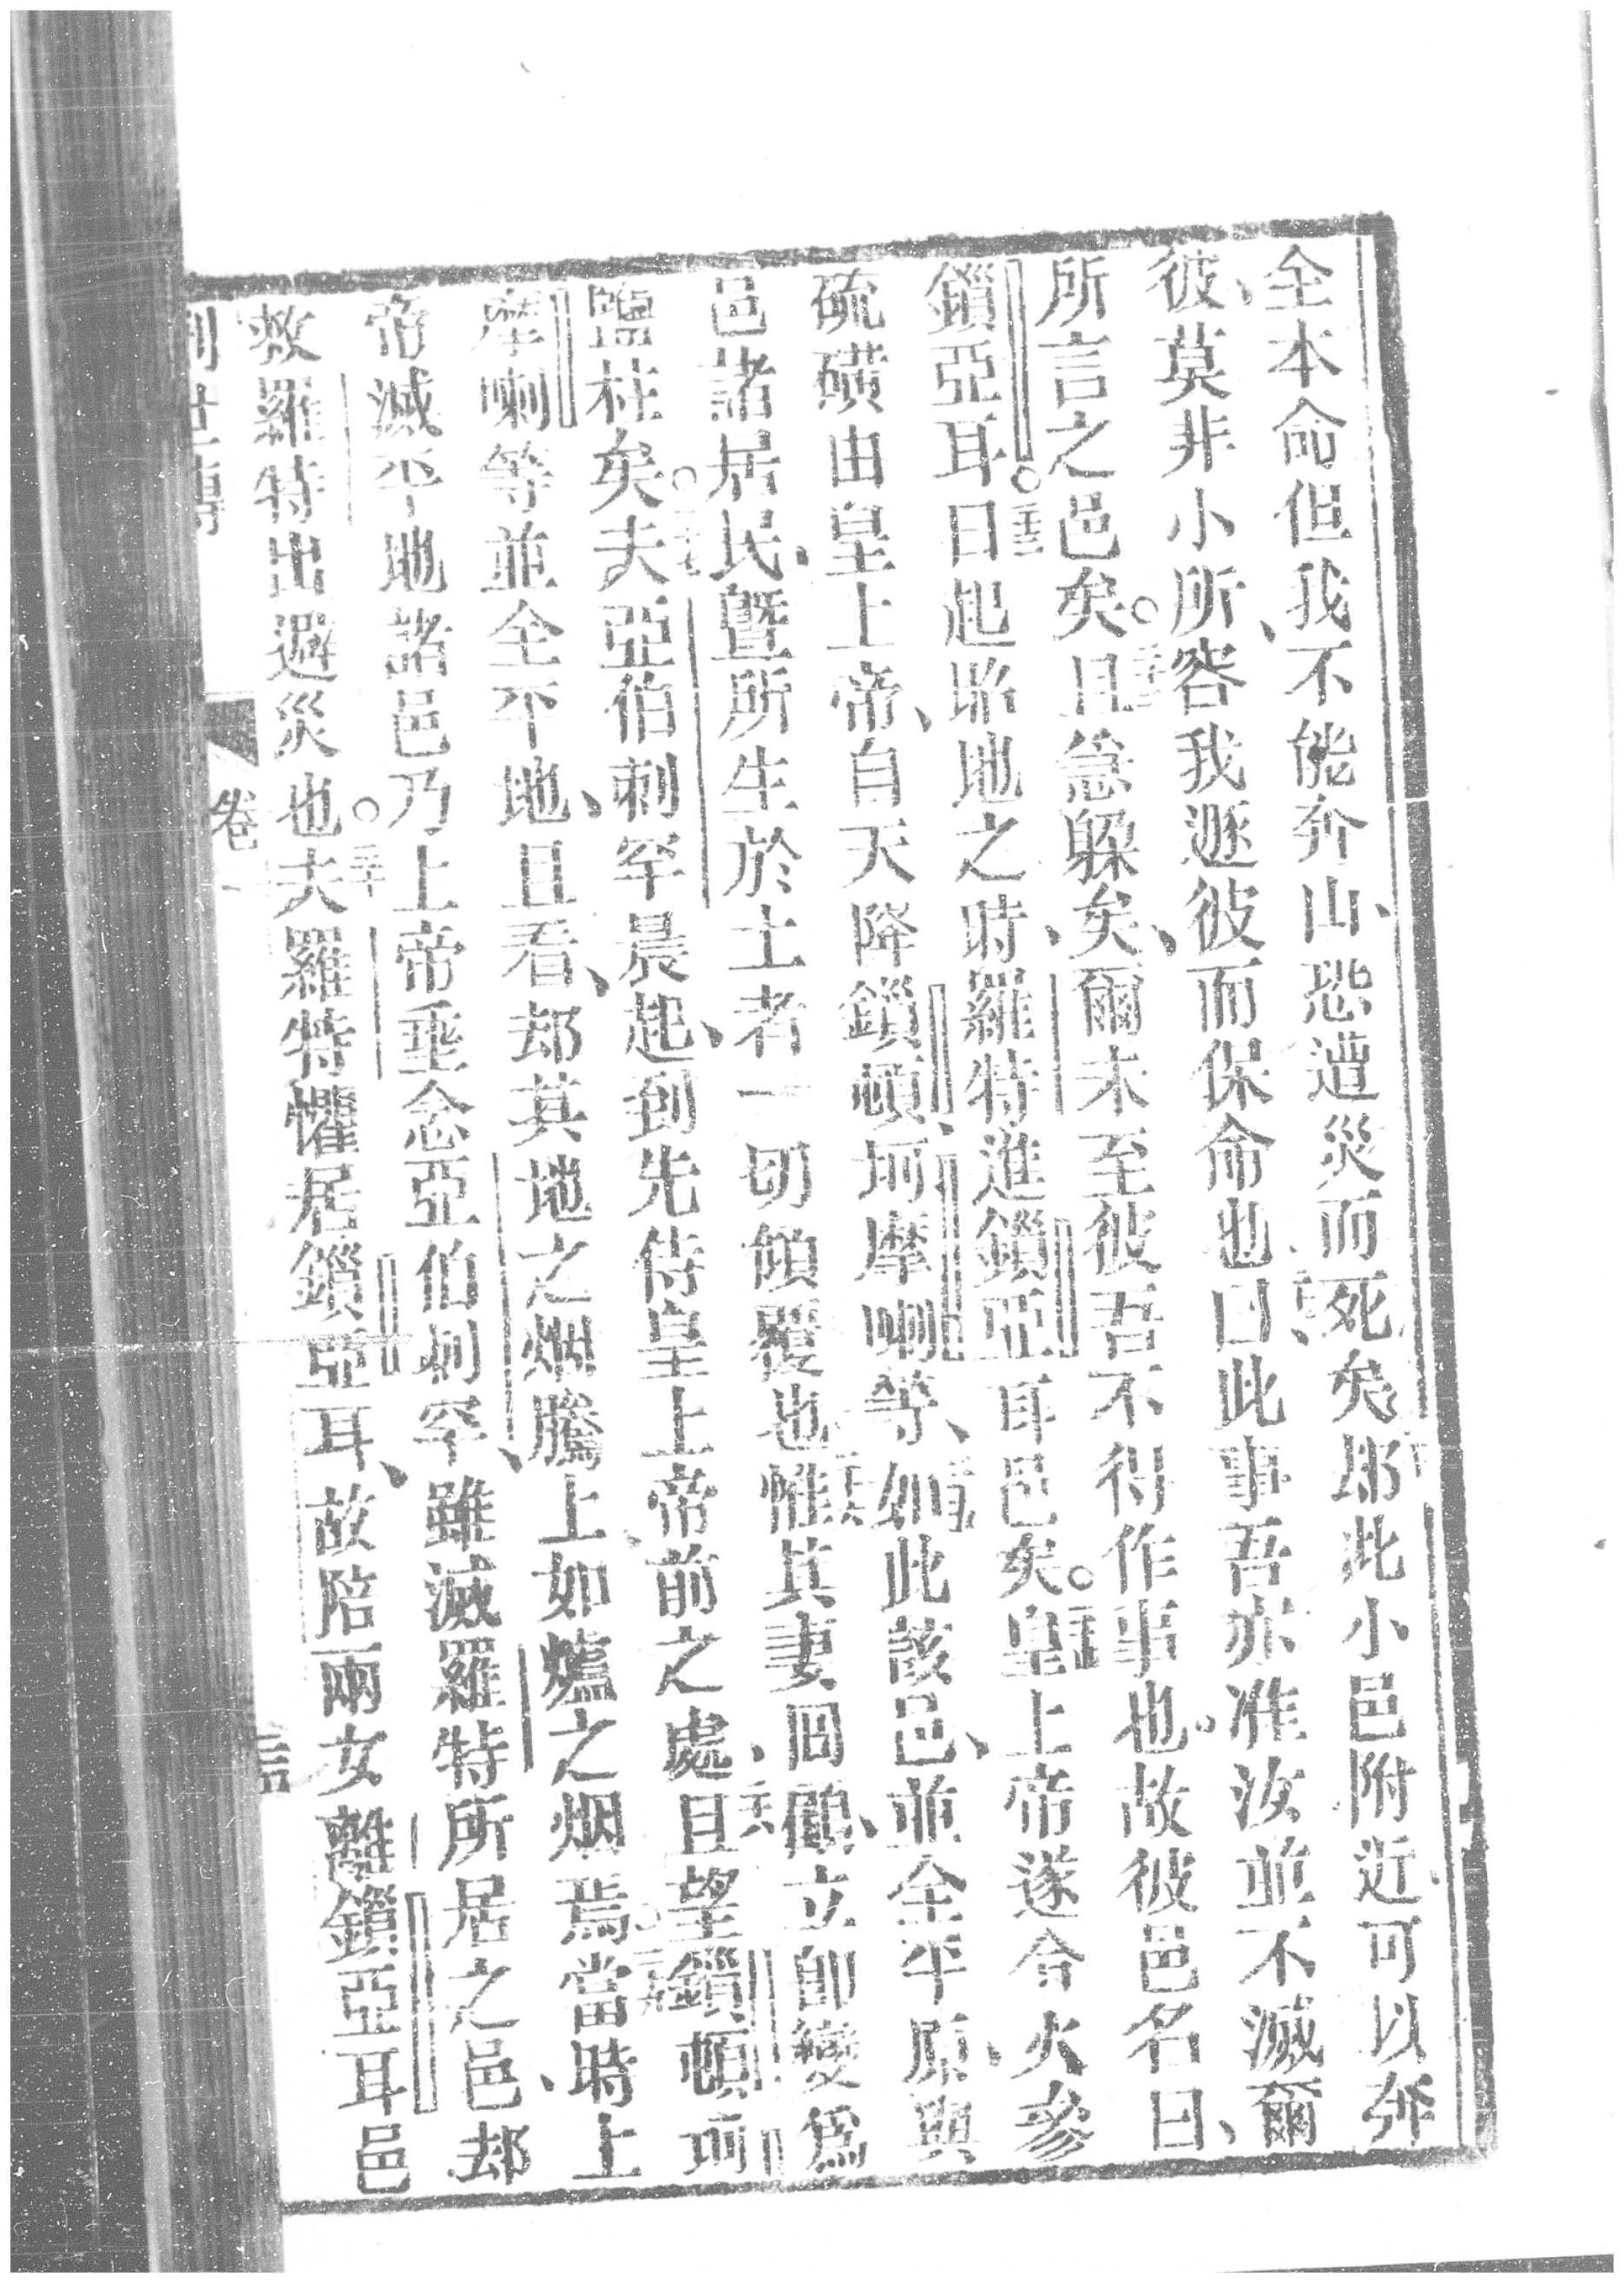 全本命但我不能奔山、恐遭災而死矣、二十那此小邑附近、可以奔
彼、莫非小所、容我遯彼而保命也、二十一曰此事吾亦准汝並不滅爾
所言之邑矣。二十二且急躱矣、爾未至彼吾不得作事也。故彼邑名曰、
鎖亞耳。二十三日起照地之時、羅特進鎖亞耳邑矣。二十四皇上帝遂令火參
硫磺由皇上帝、自天降鎖頓、坷摩喇等、二十五如此該邑、並全平原、與
邑諸居民、曁所生於土者一切傾覆也、二十六惟其妻回顧、立即變爲
鹽柱矣。二十七夫亞伯刺罕晨起、到先侍皇上帝前之處、二十八且望鎖頓坷
摩喇等並全平地、且看、却其地之烟騰上、如爐之烟焉、二十九當時上
帝滅平地諸邑乃上帝垂念亞伯刺罕、雖滅羅特所居之邑、却
救羅特出避災也。三十夫羅特懼居鎖亞耳、故陪兩女離鎖亞耳邑
創世傳 卷一